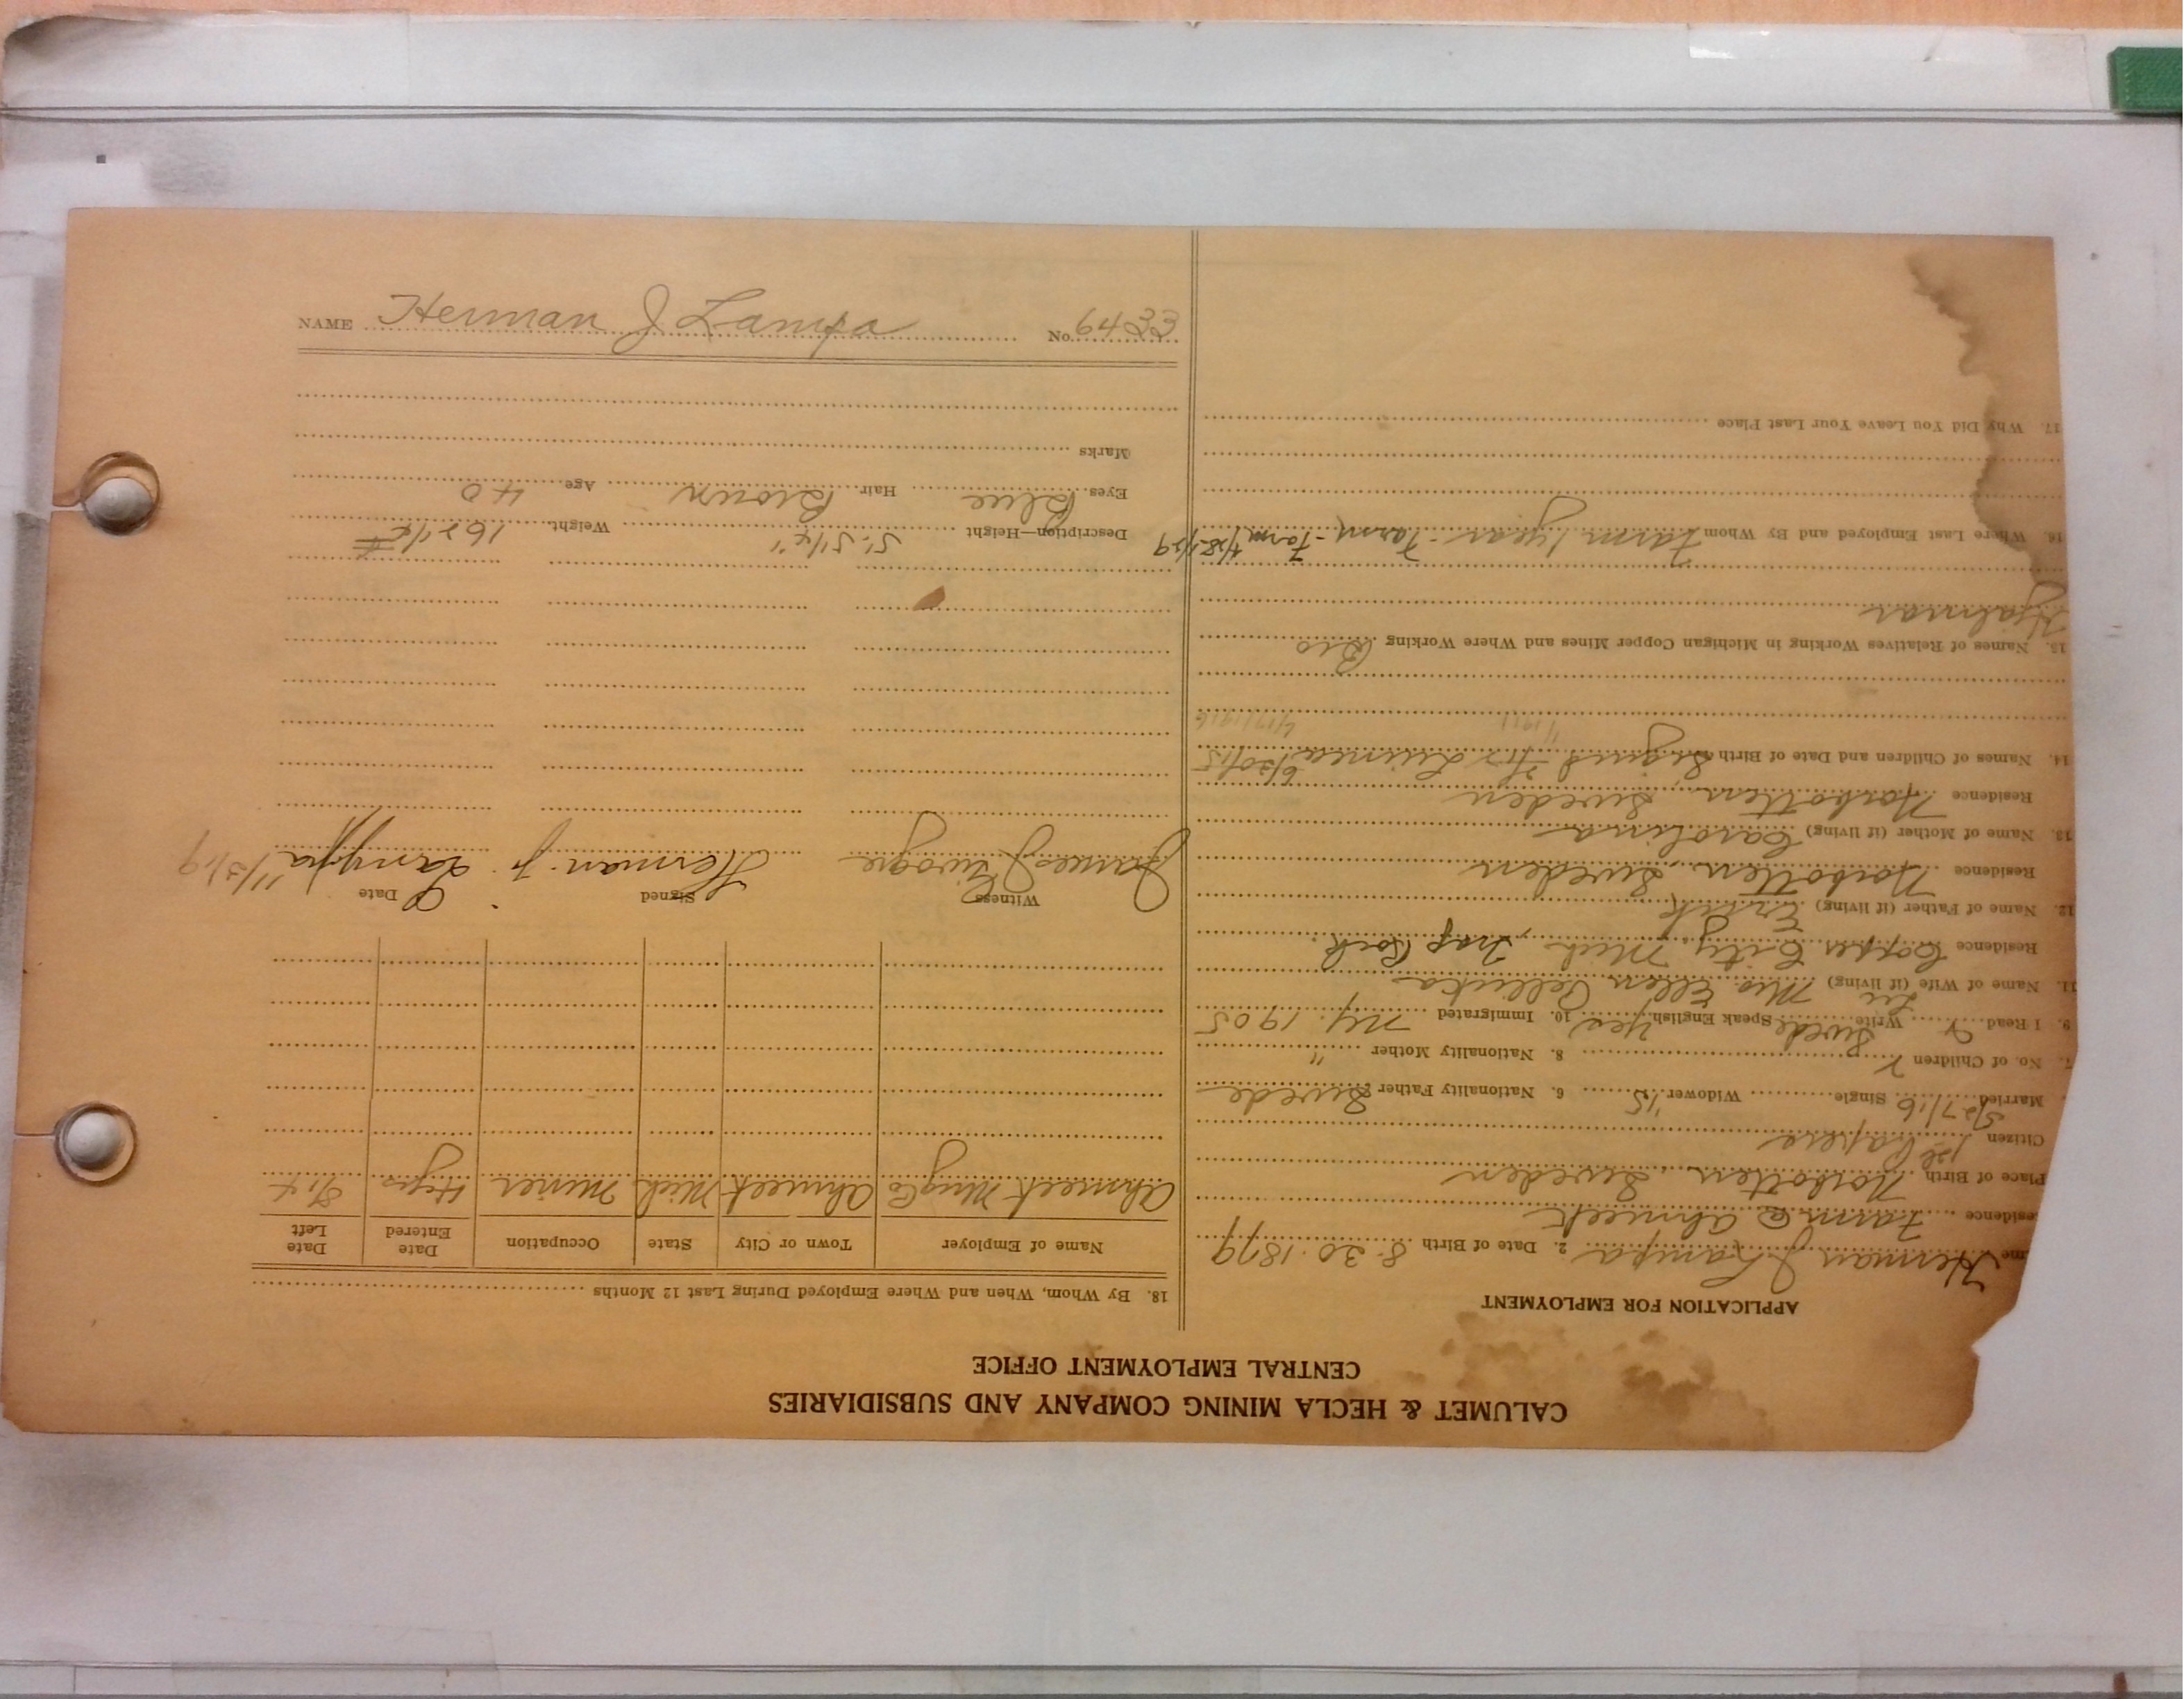 CALUMET & HECLA MINING COMPANY AND SUBSIDIARIES
CENTRAL EMPLOYMENT OFFICE
APPLICATION FOR EMPLOYMENT
me Herman J Lampa 2. Date of Birth 8-30-1879
esidence Farm @ Ahmeek
Place of Birth Norbotten, Sweden
Citizen 1st Papers
Married Single Widower '15 6. Nationality Father Swede
7. No. of Children 2 8. Nationality Mother "
9. I Read Write Swede Speak English Yes 10. Immigrated N.Y. 1905
11. Name of Wife (if living) Mrs. Ellen
Residence Copper City Mich, Trap Rock.
12. Name of Father (if living) Erick
Residence Norbotten, Sweden
13. Name of Mother (if living) Carolina
Residence Norbotten, Sweden
14. Names of Children and Date of Birth Sigrid
15. Names of Relatives Working in Michigan Copper Mines and Where Working Bro
Hjalmar
16. Where Last Employed and By Whom Farm 1 year - Farm - Farm
17. Why Did You Leave Your Last Place
18. By Whom, When and Where Employed During Last 12 Months
Name of Employer Town or City State Occupation Date Entered Date Left
Ahmeek Mng Co Ahmeek Mich Miner 4 yrs
Witness Signed Date
James Herman J. Lamppa 11/3/19
Description—Height 5'-5 1/4" Weight 162 1/2 #
Eyes Blue Hair Brown Age 40
Marks
NAME Herman J Lampa No. 6433